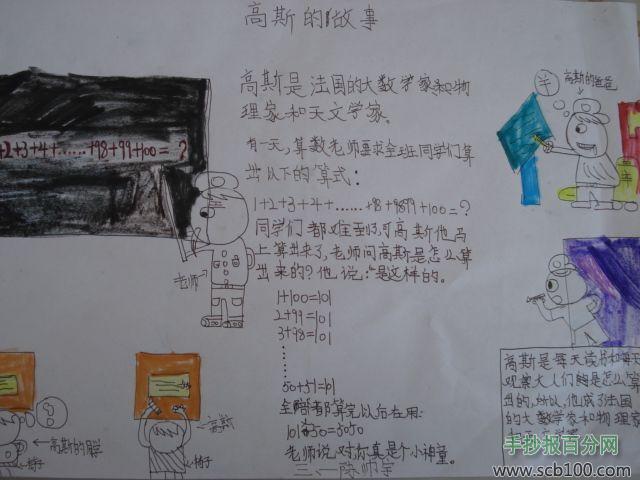 高斯的故事
高斯是法国的大数学家和物
理家和天文学家。
有一天,算数老师要求全班同学们算
出以下的算式:
1+2+3+4+……+98+9899+100=?
同学们都难到了,可高斯他马
上算出来了,老师问高斯是怎么算
出来的?他说:"是这样的。
1+100=101
2+99=101
3+98=101
50+51=101
全陪都算完以后在用:
101×50=5050
老师说对你真是个小神童。
三、一陈师宇
+2+3+4+……+98+99+100=?
老师
高斯的爸爸
高斯是每天读书和每天
观察大人们是怎么算
出的,所以,他成了法国
的大数学家和物理家
高斯的同学
椅子
高斯
椅子
手抄报百分网
www.scb100.com